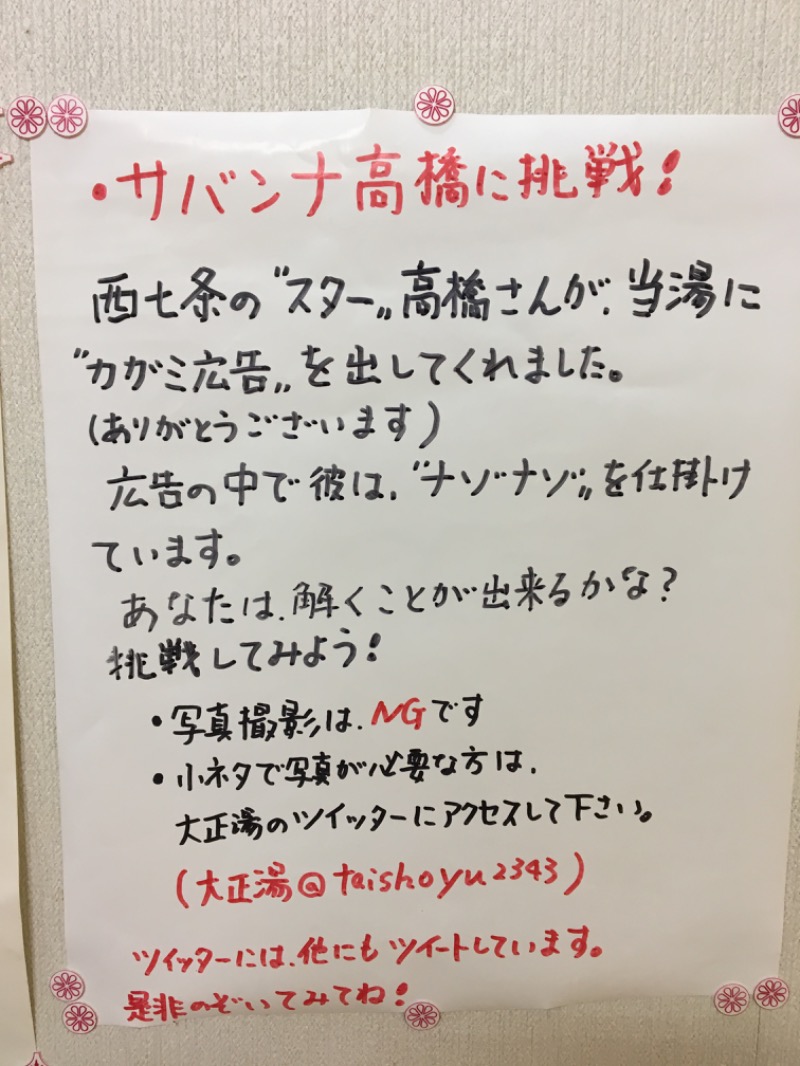 ・サバンナ高橋に挑戦!
西七条の〝スター〟高橋さんが、当湯に
〝カガミ広告〟を出してくれました。
(ありがとうございます)
広告の中で彼は、〝ナゾナゾ〟を仕掛け
ています。
あなたは、解くことが出来るかな?
挑戦してみよう!
・写真撮影は、NGです
・小ネタで写真が必要な方は、
大正湯のツイッターにアクセスして下さい。
(大正湯@taishoyu2343)
ツイッターには、他にもツイートしています。
是非のぞいてみてね!